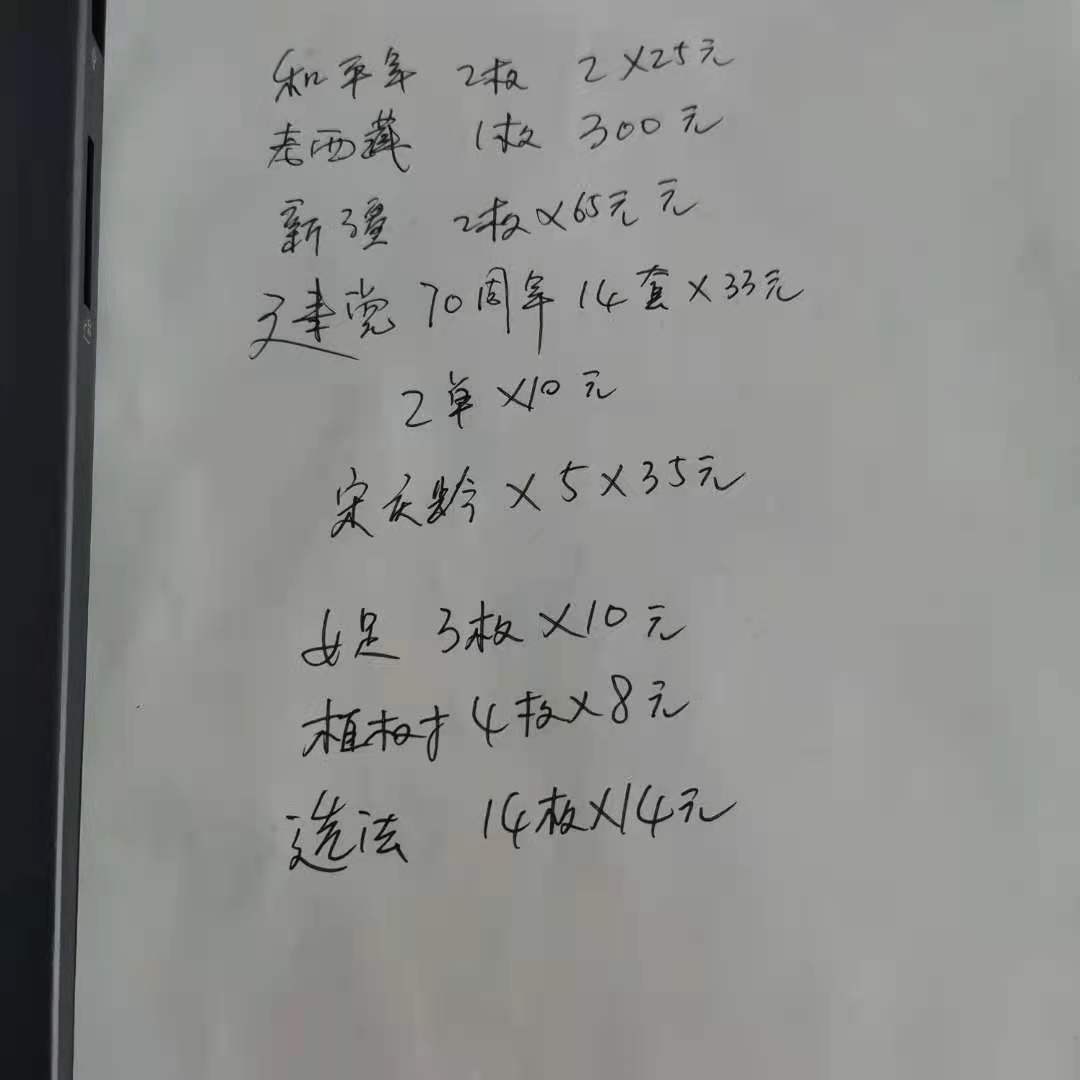 和平年 2枚 2×25元
老西藏 1枚 300元
新疆 2枚×65元元
建党70周年14套×33元
2单×10元
宋庆龄×5×35元
女足 3枚×10元
植树 4枚×8元
选法 14枚×14元